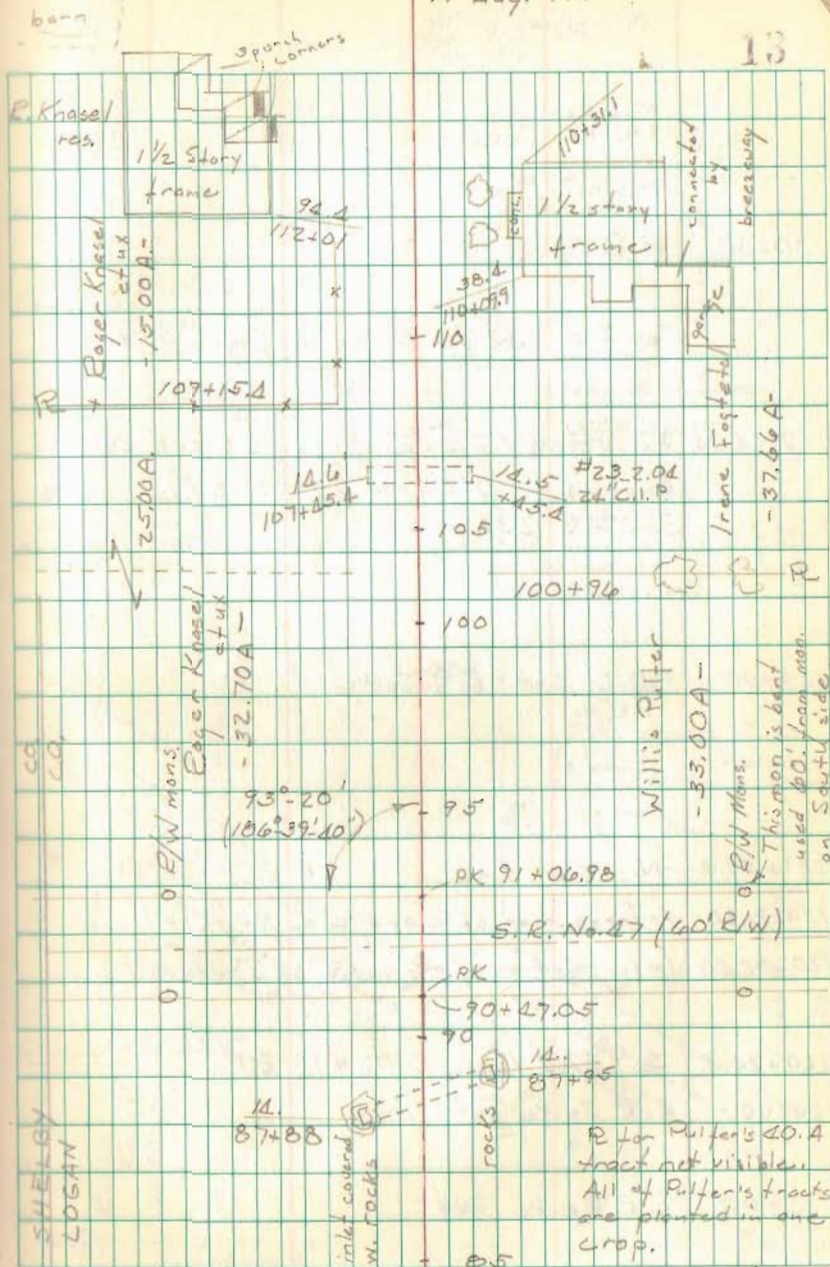 barn
3 porch
corners
13
R. Knasel
res.
1 1/2 Story
frame
94.4
112+01
110+31.1
1 1/2 story
frame
conc
connected
by
breezeway
38.4
110+09.9
garage
110
Roger Knasel
et ux
-15.00A-
107+15.4
Irene
-37.66A-
14.6'
107+45.4
14.5
+45.4
#23-2.04
24" C.I.P
25.00A.
105
100+96
100
Roger Knasel
et ux
-32.70A-
Willis Pulfer
-33.00A-
CO.
CO.
R/W mons.
R/W Mons.
This mon is bent
used 60' from mon.
on South side
93°-20'
(186°-39'-40")
95
PK 91+06.98
S.R. No. 47 (60' R/W)
PK
90+47.05
90
14.
87+95
14.
87+88
inlet covered
w. rocks
rocks
SHELBY
LOGAN
for Pulfer's 40.A
tract not visible.
All of Pulfer's tracts
are planted in one
crop.
85